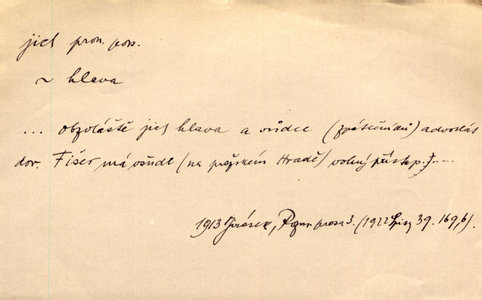 jich pron. poss.
~ hlava
... obzvláště jich hlava a vůdce (zvštěnínů) advokát
dor. Fišer, má všude (na pražském Hradě) volný přístup.
1913 Jirásek, Pozn. prosa 3. (1922 Spisy 39. 169,6).